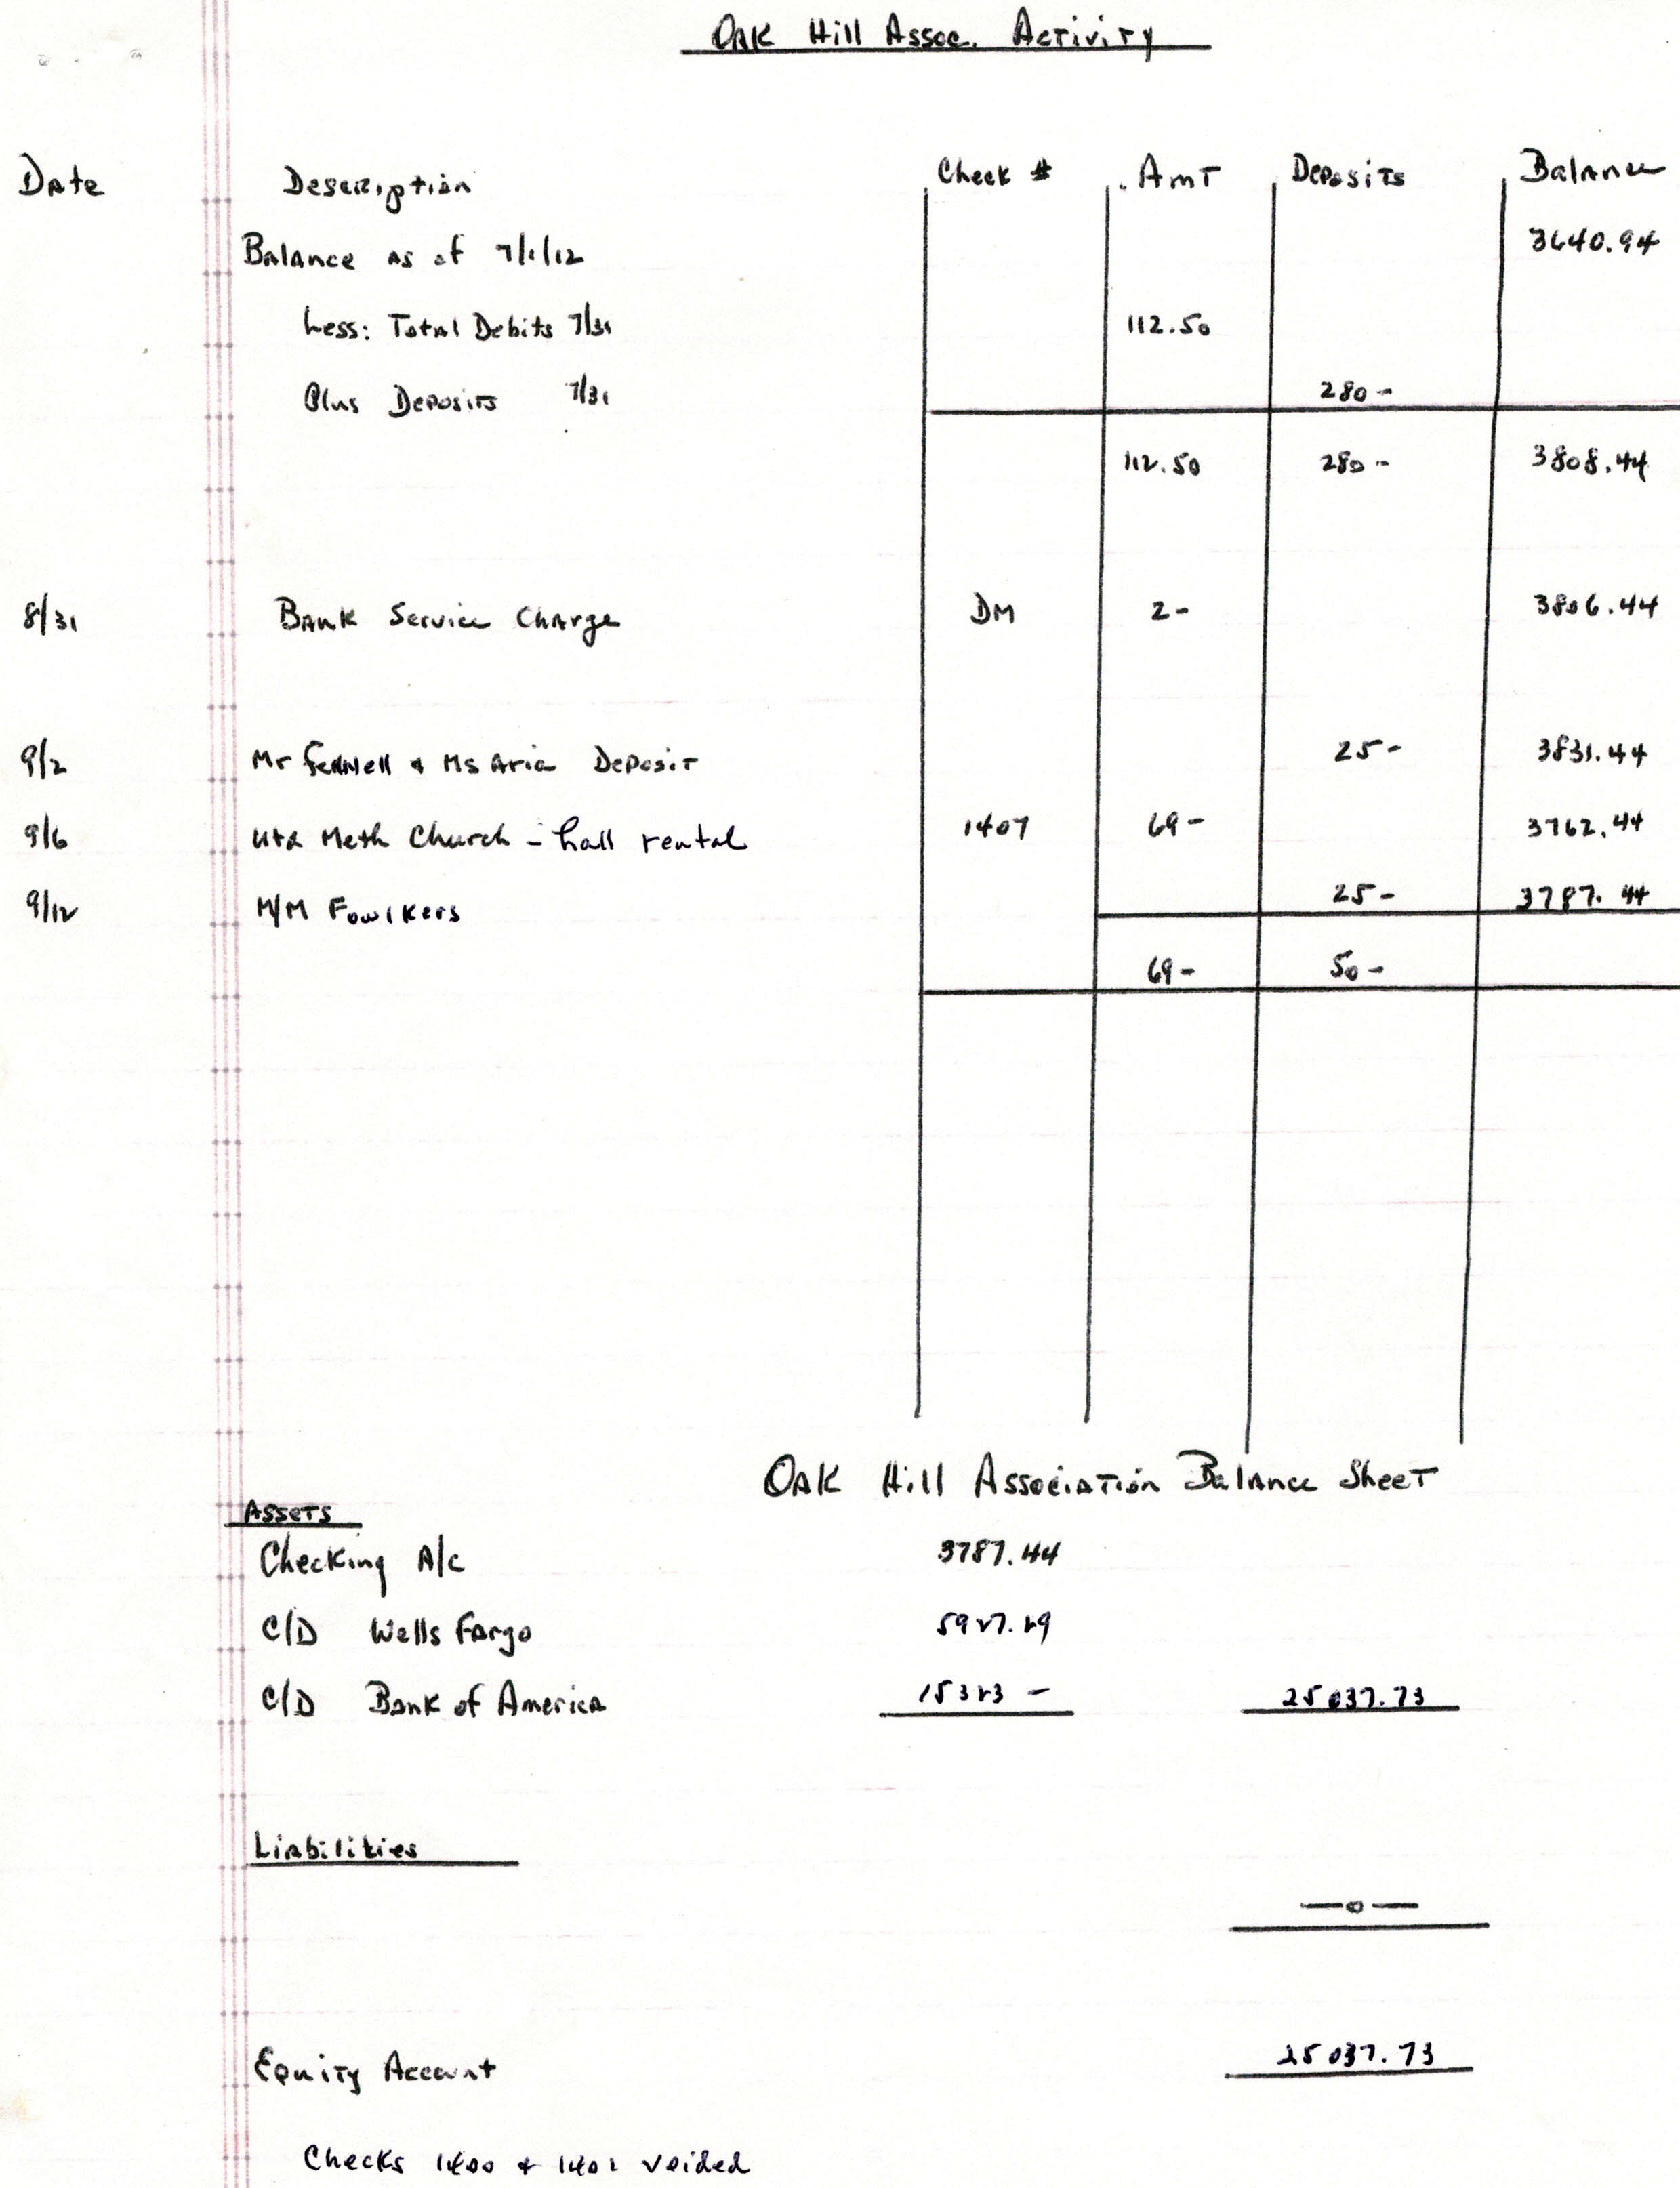 Oak Hill Assoc. Activity
Date Description Check # Amt Deposits Balance
Balance as of 7/1/12 3640.94
Less: Total Debits 7/31 112.50
Plus Deposits 7/31 280-
112.50 280- 3808.44
8/31 Bank Service Charge DM 2- 3806.44
9/2 Mr Fennell & Ms Aria Deposit 25- 3831.44
9/6 Utd Meth Church - hall rental 1407 69- 3762.44
9/12 M/M Fowlkers 25- 3787.44
69- 50-
Oak Hill Association Balance Sheet
Assets
Checking A/c 3787.44
C/D Wells Fargo 5927.29
C/D Bank of America 15323 - 25037.73
Liabilities
—0—
Equity Account 25037.73
Checks 1400 & 1401 voided